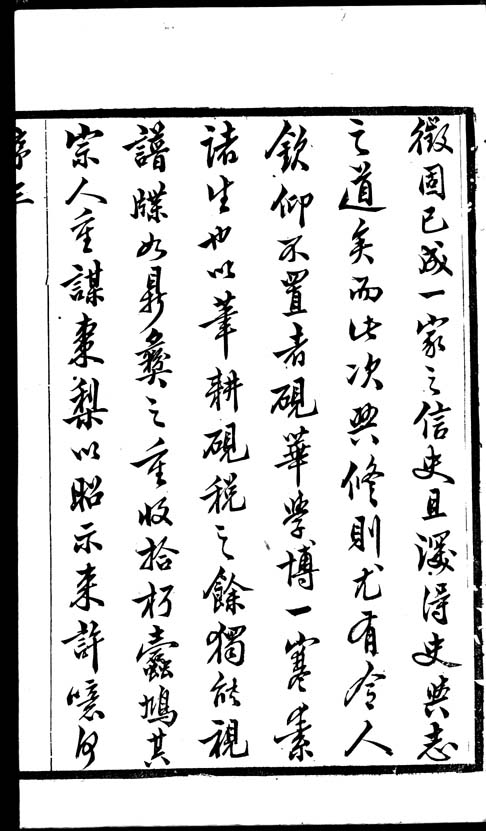 徵固已成一家之信史且深得史與志
之道矣而此次興修則尤有令人
欽仰不置者硯華學博一寒素
諸生也以筆耕硯税之餘獨能視
譜牒如鼎彝之重收拾朽蠹鳩其
宗人重謀棗梨以昭示來許噫何
序三